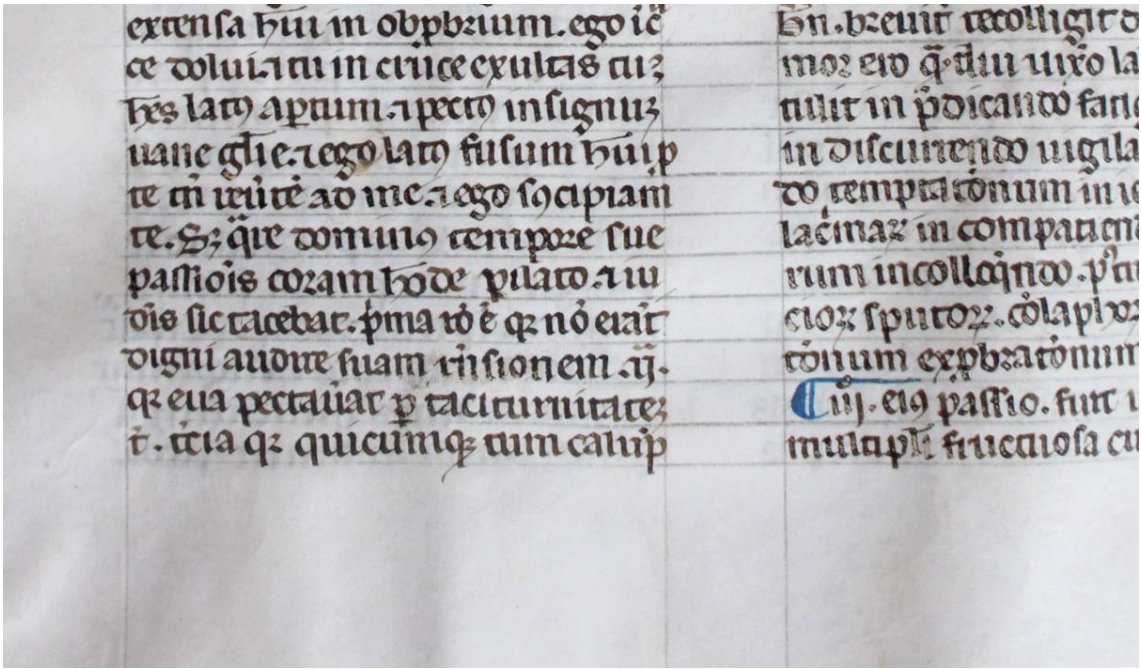 extensa hͦui in obpbrium. ego i cͣ
ce dolui. ⁊ tu in cruce exultas tuꝫ
hēs latꝰ aꝑtum. ⁊ pectꝰ insignuꝫ
uane gl̄ie. ⁊ ego latꝰ fusum hͦui ꝓ
te tn̄ ueūtē ad me. ⁊ ego sꝰcipiam
te. Sꝫ qͣre dominꝰ tempore sue
passiōis coram hōde pilato. ⁊ iu
dīs sic tacebat. pͥma rō ē qꝛ nō erāt
digni audire suam rn̄sionem .ij.
qꝛ eua peccauāt ꝑ taciturnitateꝫ
t̄. tc̄ia qꝛ quicūmqꝫ tum calūp
hn̄. breuit̄ recolligit
moꝝ eiꝰ
tulit in p̄dicando
in discurrendo uigila
do temptatōnum in
lac̄maꝝ in compacien
rum in colloq̄ndo.
cioꝝ sputoꝝ. cōlaphoꝝ
tōnum exꝓbratōnum
¶ iij. eiꝰ passio. fuit
multipl̄i fructuosa